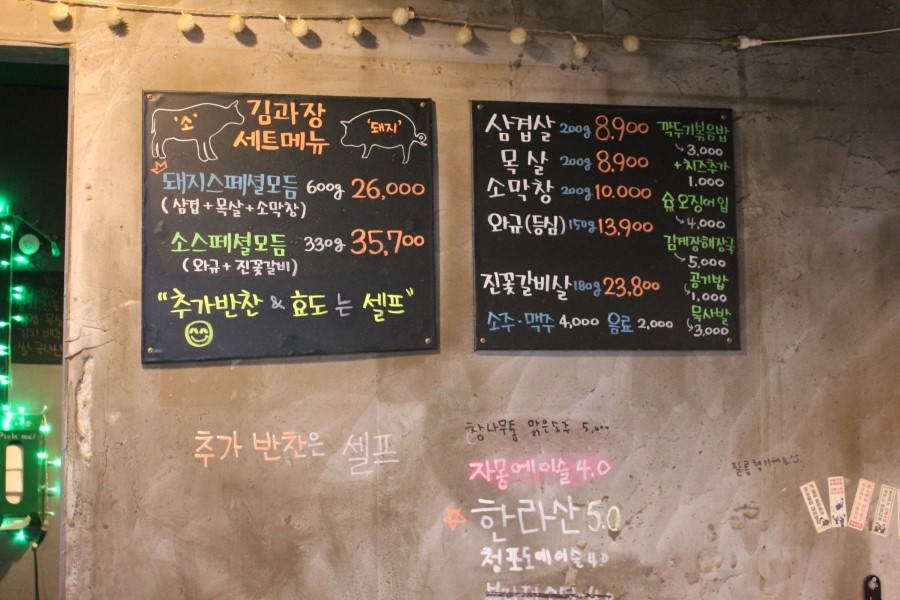 '소'
김과장
세트메뉴
'돼지'
돼지스페셜모듬 600g 26,000
(삼겹+목살+소막창)
소스페셜모듬 330g 35,700
(와규+진꽃갈비)
"추가반찬 & 효도는 셀프"
삼겹살 200g 8.900
목살 200g 8.900
소막창 200g 10.000
와규(등심) 150g 13,900
진꽃갈비살 180g 23,800
소주·맥주 4,000 음료 2,000
깍두기볶음밥
3,000
+치즈추가
1.000
오징어입
4,000
해장국
5,000
공기밥
1,000
묵사발
3,000
Push me!
추가 반찬은 셀프
맑은소주 5,000
자몽에이슬 4.0
한라산 5.0
청포도에이슬 4.0